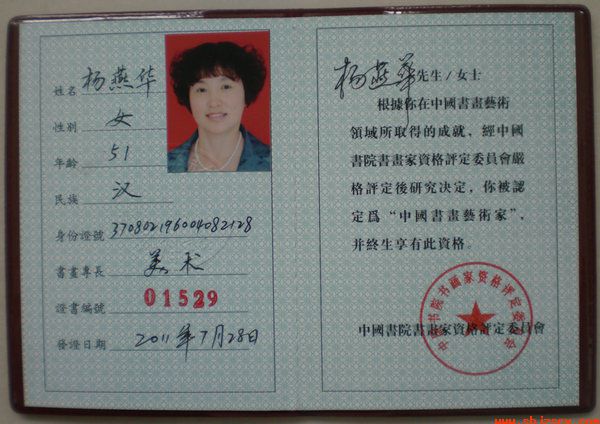 姓名 杨燕华
性別 女
年齡 51
民族 汉
身份證號 370802196004082128
書畫專長 美术
證書編號 01529
發證日期 2011年7月28日
杨燕華先生/女士
根據你在中國書畫藝術
領域所取得的成就，經中國
書院書畫家資格評定委員會嚴
格評定後研究决定，你被認
定爲“中國書畫藝術家”，
并終生享有此資格。
中國書院書畫家資格評定委員會